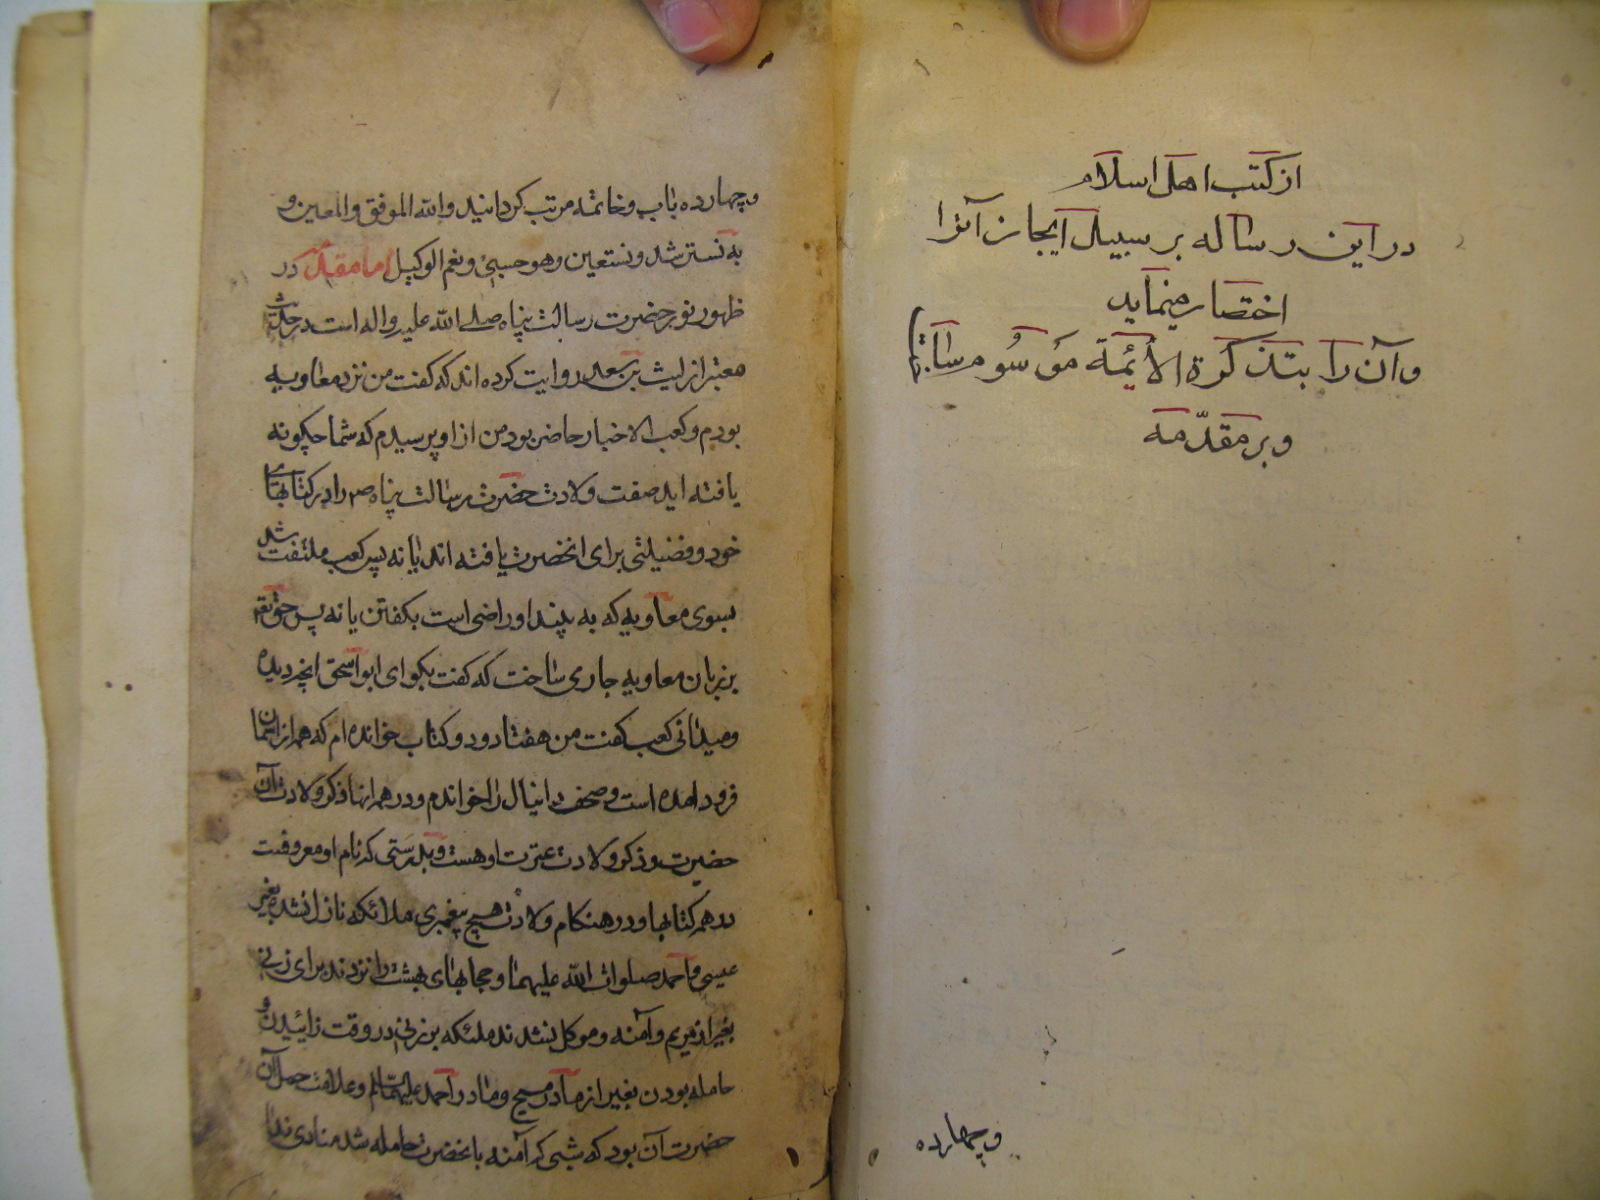 از کتب اهل اسلام
در این رساله بر سبیل ایجاز آنرا
اختصار مینماید
و آن را بتذکرة الأئمة موسوم ساخته
و بر مقدّمه
و چهارده
و چهارده باب و خاتمه مرتب کردانید والله الموفق والمعین و
به نسترشد و نستعین و هو حسبی و نعم الوکیل اما مقدمه در
ظهور نور حضرت رسالت پناه صلی الله علیه و اله است در حدیث
معتبر از لیث بن سعد روایت کرده اند که کفت من نزد معاویه
بودم و کعب الاخبار حاضر بود من از او پرسیدم که شما چکونه
یافته اید صفت ولادت حضرت رسالت پناه ص را در کتابهای
خود و فضیلتی برای انحضرت یافته اند یا نه پس کعب ملتفت شد
بسوی معاویه که به بیند او راضی است بکفتن یا نه پس حق تعم
بر زبان معاویه جاری ساخت که کفت بکو ای ابو اسحق انچه دیده
و میدانی کعب کفت من هفتاد و دو کتاب خوانده ام که همه از اسمان
فرود امده است و صحف دانیال را خواندم و در همه انها ذکر ولادت آن
حضرت و ذکر ولادت عترت او هست و بدرستی که نام او معروفست
در همه کتابها و در هنکام ولادت هیچ پیغمبری ملائکه نازل نشده بغیر
عیسی و احمد صلوات الله علیهما و حجابهای بهشت را نزدند برای زنی
بغیر از مریم و آمنه و موکل نشدند ملئکه بر زنی در وقت زائیدن و
حامله بودن بغیر از مادر مسیح و مادر احمد علیهما السلام و علامت حمل آن
حضرت آن بود که شبی که آمنه بانحضرت حامله شد منادی ندا